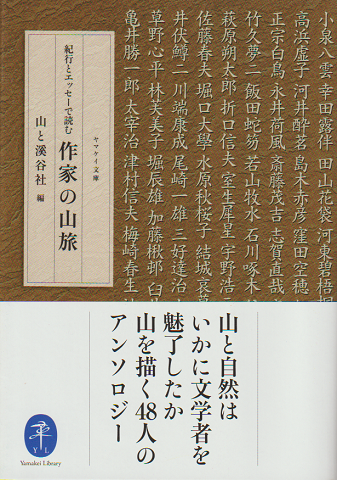 小泉八雲 幸田露伴 田山花袋 河東碧梧桐
高浜虚子 河井酔茗 島木赤彦 窪田空穂
正宗白鳥 永井荷風 斎藤茂吉 志賀直哉
竹久夢二 飯田蛇笏 若山牧水 石川啄木
萩原朔太郎 折口信夫 室生犀星 宇野浩二
佐藤春夫 堀口大學 水原秋桜子 結城哀草
井伏鱒二 川端康成 尾崎一雄 三好達治
草野心平 林芙美子 堀辰雄 加藤楸邨 臼井
亀井勝一郎 太宰治 津村信夫 梅崎春生
ヤマケイ文庫
作家の山旅
紀行とエッセーで読む
山と溪谷社 編
山と自然は
いかに文学者を
魅了したか
山を描く48人の
アンソロジー
Y L
Yamakei Library